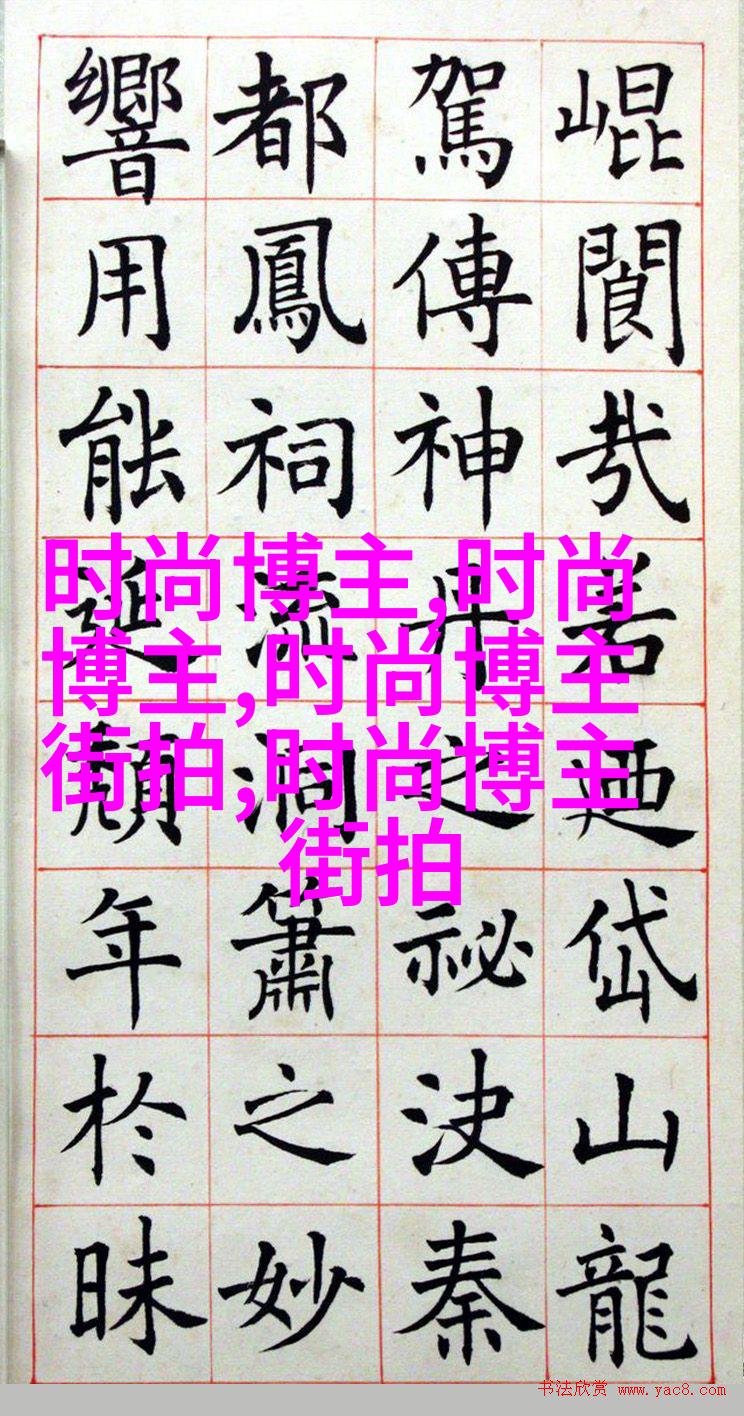 崐閬若廼岱山龍
駕傳神丹之祕決秦
都鳳祠流洞簫之妙
響用能延頽年於昧
时尚博主,时尚
博主,时尚博主
街拍,时尚博主
街拍
书法欣赏 www.yac8.com